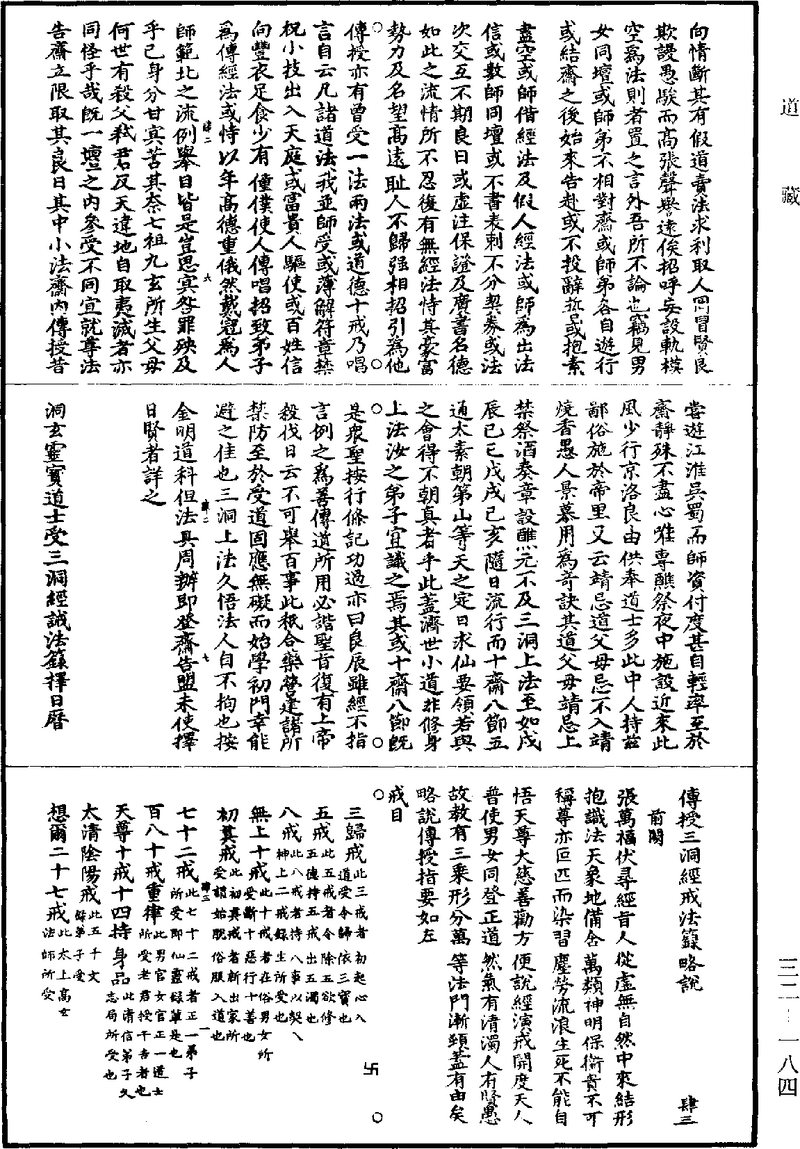 道藏
三二-一八四
向情斷其有假道賣法求利取人罔冒賢良
欺謾愚騃而高張聲譽遠俟招呼妄設軌模
空為法則者置之言外吾所不論也竊見男
女同壇或師弟不相對齋或師弟各自遊行
或結齋之後始來告赴或不投辭誓或抱素
盡空或師借經法及假人經法或師為出法
信或數師同壇或不書表刺不分契券或法
次交互不期良日或虛注保證及廣書名德
如此之流情所不忍復有無經法恃其豪富
勢力及名望高遠耻人不歸強相招引為他
傳授亦有曾受一法兩法或道德十戒乃唱
言自云凡諸道法我並師受或薄解符章禁
祝小技出入天庭或富貴人驅使或百姓信
向豐衣足食少有僮僕使人傳唱招致弟子
為傳經法或恃以年高德重俄然戴冠為人
師範北之流例舉目皆是豈思冥咎罪殃及
乎己身分甘冥苦其奈七祖九玄所生父母
何世有殺父弒君反天違地自取夷滅者亦
同怪乎哉既一壇之內參受不同宜就尊法
告齋立限取其良日其中小法齋內傳授昔
嘗遊江淮吳蜀而師資付度甚自輕率至於
齋靜殊不盡心唯專醮祭夜中施設近來此
風少行京洛良由供奉道士多此中人持茲
鄙俗施於帝里又云靖忌遣父母忌不入靖
燒香愚人景慕用為奇訣其道父母靖忌上
禁祭酒奏章設醮元不及三洞上法至如戊
辰已巳戊戌已亥隨日流行而十齋八節五
通太素朝第山等天之定日求仙要領若與
之會得不朝真者乎此蓋濟世小道非修身
上法汝之弟子宜識之焉其或十齋八節既
是衆聖按行條記功過亦曰良辰雖經不指
言例之為善傳道所用必諧聖旨復有上帝
殺伐日云不可舉百事此秖合藥營建諸所
禁防至於受道固應無礙而始學初門幸能
避之佳也三洞上法久悟法人自不拘也按
金明道科但法具周辦即登齋告盟未使擇
日賢者詳之
洞玄靈寶道士受三洞經誡法籙擇日曆
傳授三洞經戒法籙略說　肆三
前闕
張萬福伏尋經旨人從虛無自然中來結形
抱識法天象地備含萬類神明保衛貴不可
稱尊亦叵匹而染習塵勞流浪生死不能自
悟天尊大慈善勸方便說經演戒開度天人
普使男女同登正道然氣有清濁人有賢愚
故教有三乘形分萬等法門漸頭蓋有由矣
略說傳授指要如左
戒目
三歸戒此三戒者初起心入道受令歸依三寶也
五戒此五戒者令除五欲修五德持五戒出五濁也
八戒此八戒者持八事以契八神上二戒錄生所受也
無上十戒此十戒者在俗男女所受斷十惡行十善也
初真戒此初真戒者新出家所受謂始脫俗服入道也
七十二戒此七十二戒者正一弟子所受即仙靈籙單是也
百八十戒重律此男官女官正一道士所受老君授干吉者也
天尊十戒十四持身品此清信弟子久志局所受也
太清陰陽戒此五千文籙弟子受
想爾二十七戒此太上高玄法師所受